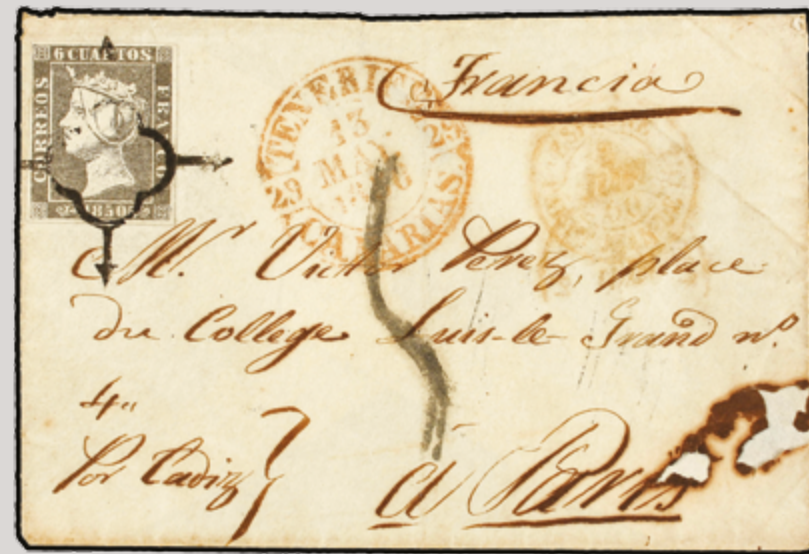 6 CUARTOS
CORREOS
FRANCO
1850
TENERIFE
13
MAY
CANARIAS
Francia
Mr. Victor Perez, place
du College Luis-le-Grand nº.
4"
Por Cadiz
á Paris